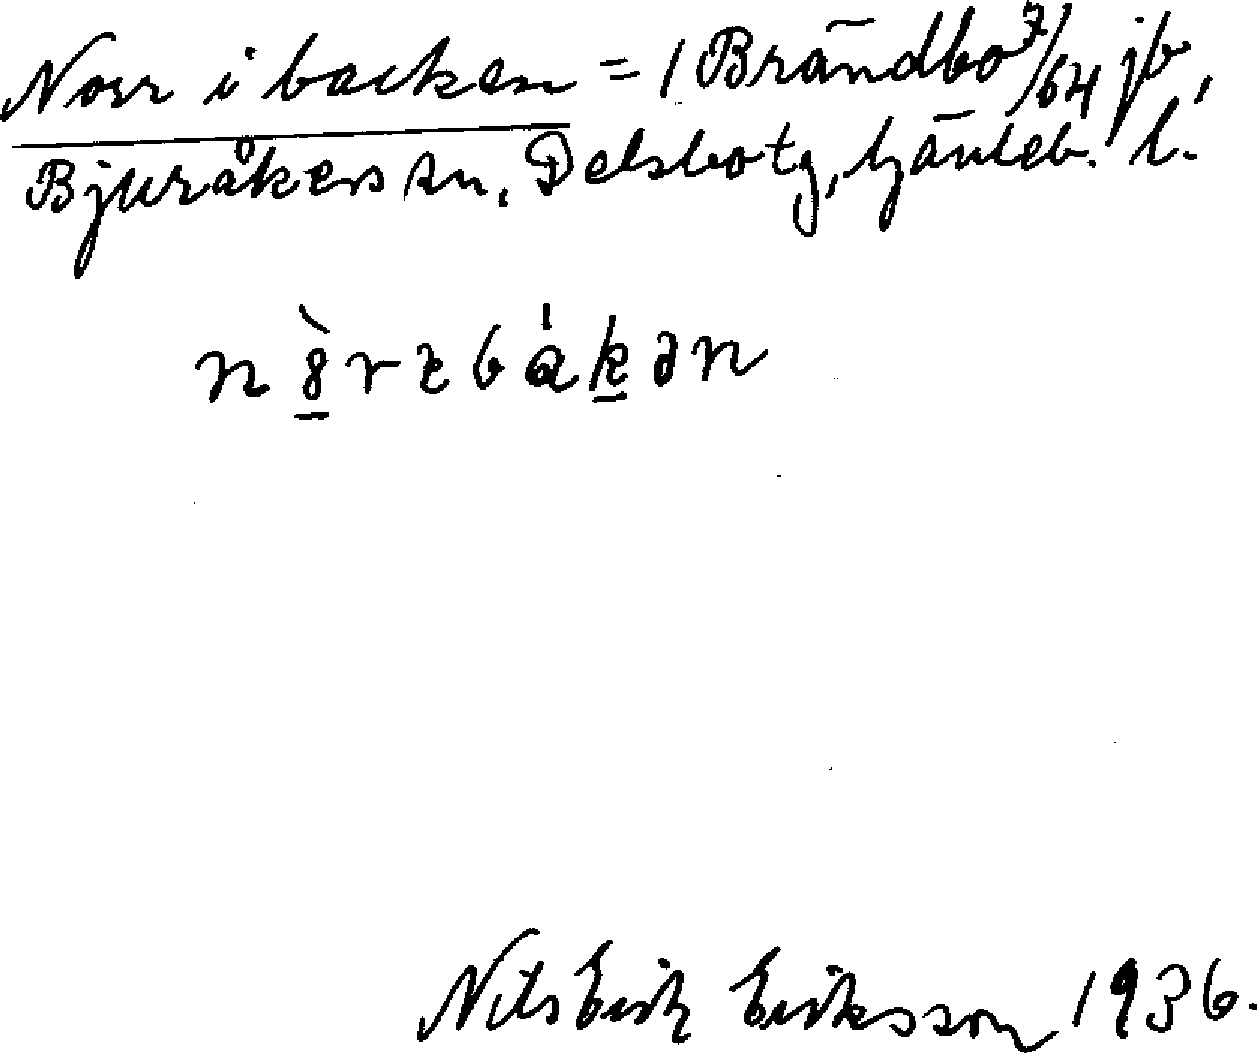 Norr i backen = 1 Brändbo 7/64 jb,
Bjuråkers sn, Delsbo tg, Gävleb. l.
Nils Erik Eriksson 1936.